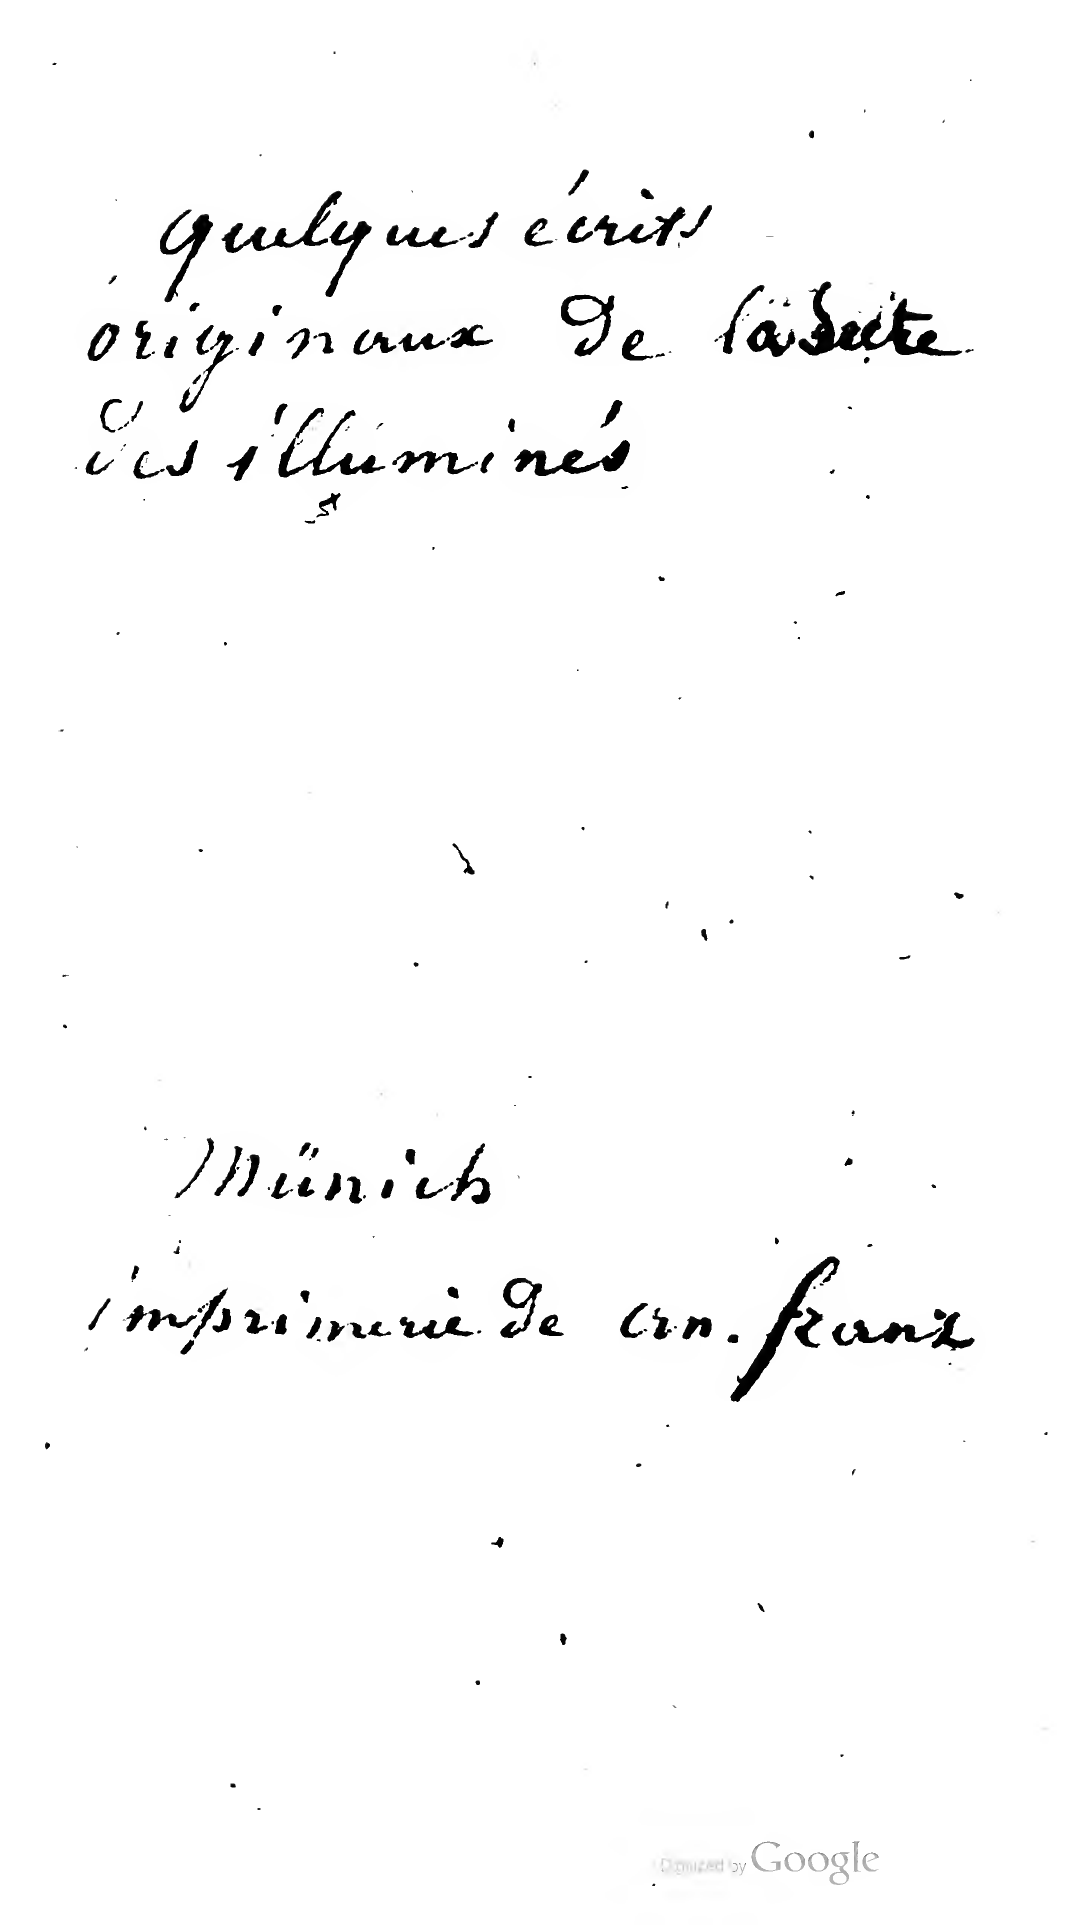 quelques écrits
originaux de la secte
des illuminés
Münich
imprimerie de an. franz
Digitized by Google